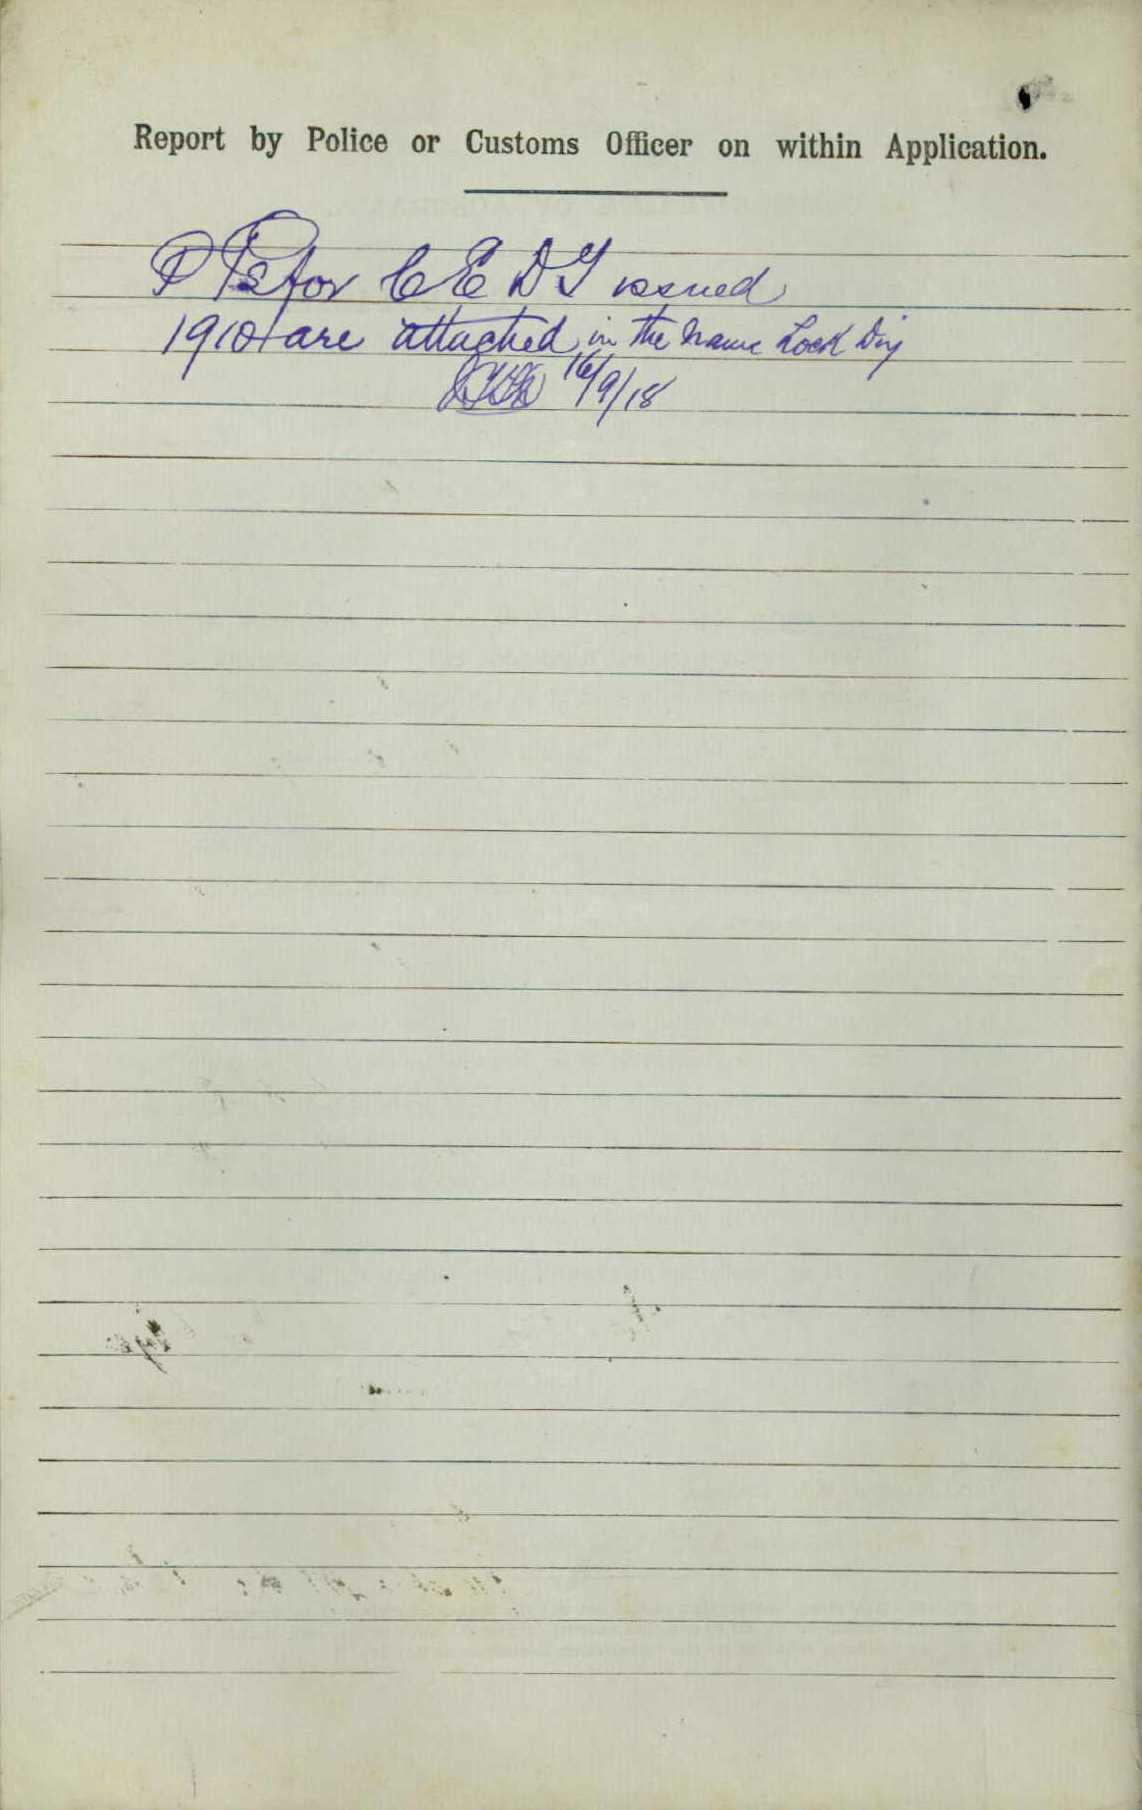 Report by Police or Customs Officer on within Application.
P Ps for C E D T issued
1910 are attached in the name Lock Ding
16/9/18